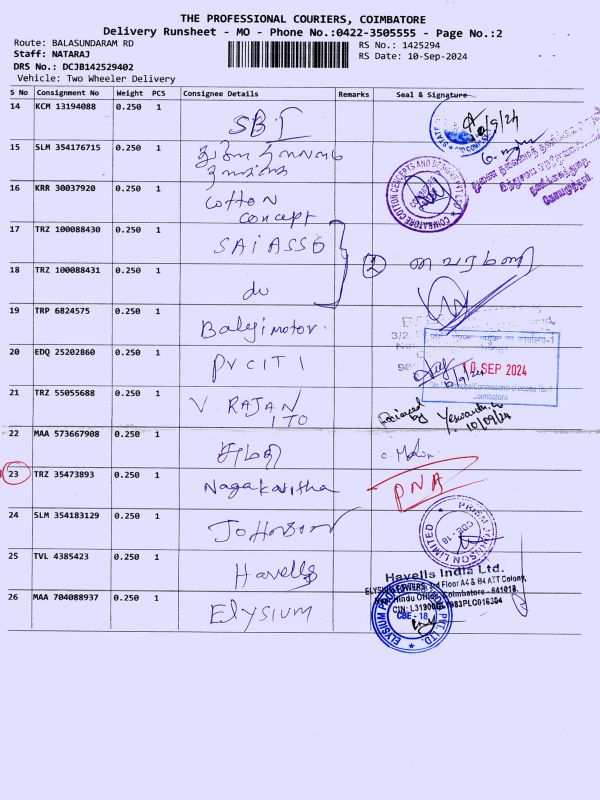 THE PROFESSIONAL COURIERS, COIMBATORE
Delivery Runsheet - MO - Phone No.:0422-3505555 - Page No.:2
Route: BALASUNDARAM RD
RS No.: 1425294
Staff: NATARAJ
RS Date: 10-Sep-2024
DRS No.: DCJB142529402
Vehicle: Two Wheeler Delivery
S No Consignment No Weight PCS Consignee Details Remarks Seal & Signature
14 KCM 13194088 0.250 1 SBI
10/9/24
15 SLM 354176715 0.250 1
16 KRR 30037920 0.250 1 Cotton
concept
COIMBATORE COTTON CONCEPTS AND DESIGNS PVT LTD
17 TRZ 100088430 0.250 1 SAI ASSO
2
18 TRZ 100088431 0.250 1 do
19 TRP 6824575 0.250 1 Balaji motor.
20 EDQ 25202860 0.250 1 PVCIT 1
10 SEP 2024
Commissioner of Income Tax-1
Coimbatore
21 TRZ 55055688 0.250 1 V RAJAN
ITO
Recieved
by
10/09/24
22 MAA 573667908 0.250 1
23 TRZ 35473893 0.250 1 Nagakavitha PNA
24 SLM 354183129 0.250 1 Johnson
PRISM JOHNSON LIMITED
CBE-18
25 TVL 4385423 0.250 1 Havells
Havells India Ltd.
ELYSIUM TOWERS, 3rd Floor A4 & B4 ATT Colony,
Hindu Office, Coimbatore - 641018.
26 MAA 704088937 0.250 1 Elysium
CBE - 18